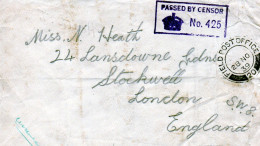 PASSED BY CENSOR
No. 425
Miss. N. Heath
24 Lansdowne Gdns
Stockwell
London
S.W.8
England
FIELD POST OFFICE